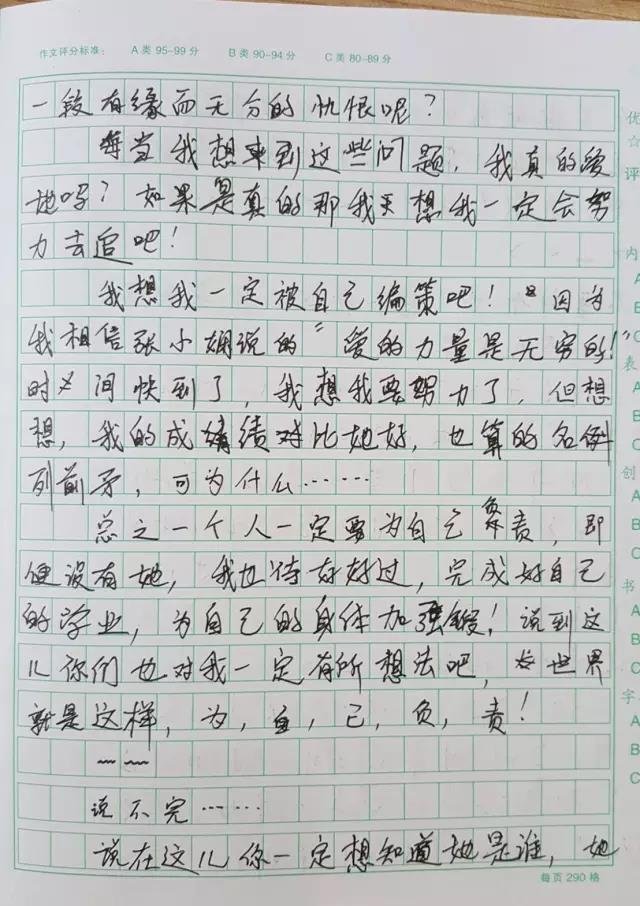 作文评分标准： A 类 95-99 分 B 类 90-94 分 C 类 80-89 分
一段有缘而无分的仇恨呢？
每当我想来到这些问题，我真的爱
她吗？如果是真的那我想我一定会努
力去追吧！
我想我一定被自己编策吧！“因为
我相信张小娴说的“爱的力量是无穷的！”
时间快到了，我想我要努力了，但想
想，我的成绩对比她好，也算的名例
列前矛，可为什么……
总之一个人一定要为自己负责，即
便没有她，我也待好好过，完成好自己
的学业，为自己的身体加强锻！说到这
儿你们也对我一定有所想法吧，世界
就是这样，为，自，己，负，责！
~~
说不完……
说在这儿你一定想知道她是谁，她
每页 290 格
优
☆
评
内
A
B
C
表
A
B
C
创
A
B
C
书
A
B
C
字
A
B
C